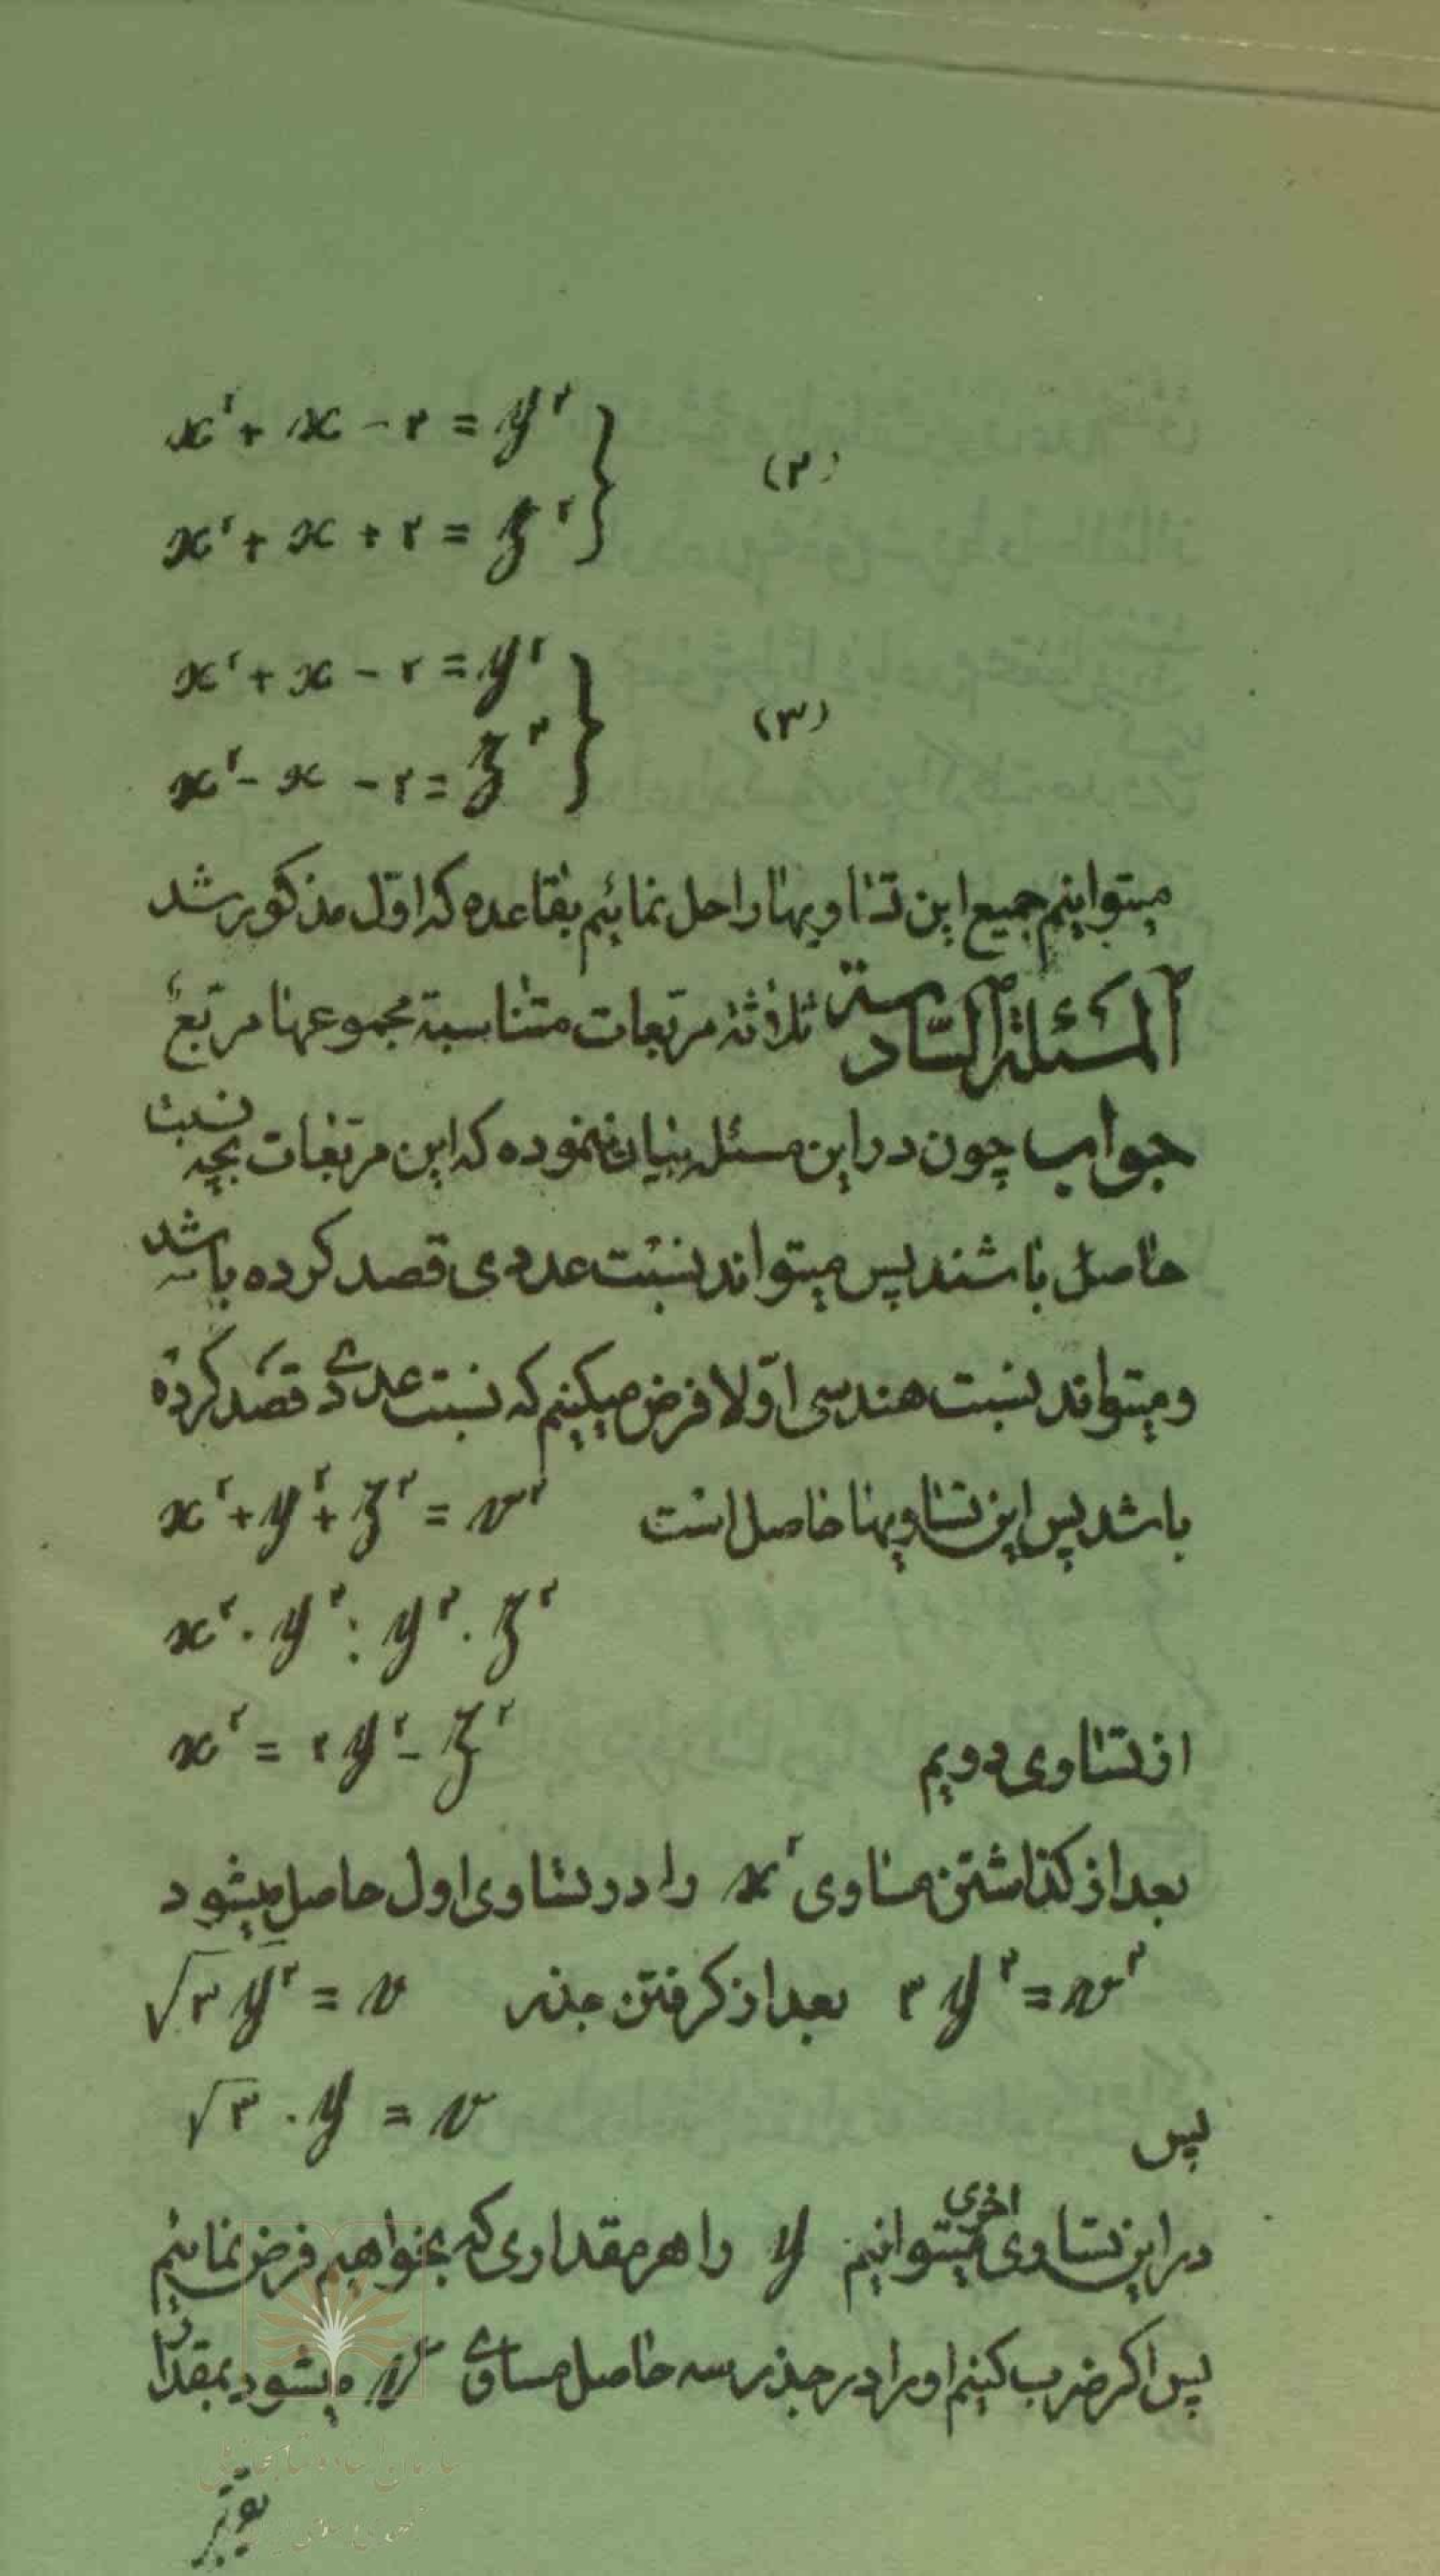 x² + x - ۲ = y²
x² + x + ۲ = z² } (۲)
x² + x - ۲ = y²
x² - x - ۲ = z² } (۳)
میتوانیم جمیع این تساویها را حل نمائیم بقاعده که اول مذکور شد
المسئلة السادسة ثلاثة مربعات متناسبة مجموعها مربع
جواب چون در این مسئله بیان ننموده که این مربعات بچه نسبت
حاصل باشند پس میتواند نسبت عددی قصد کرده باشد
و میتواند نسبت هندسی اولا فرض میکنیم که نسبت عددی قصد کرده
باشد پس این تساویها حاصل است x² + y² + z² = v²
x² . y² : y² . z²
از تساوی دویم x² = ۲y² - z²
بعد از کذاشتن مساوی x² را در تساوی اول حاصل میشود
۳y² = v² بعد از کرفتن جذر √۳y² = v
پس √۳ . y = v
در این تساوی اخری میتوانیم y را هر مقداری که بخواهیم فرض نمائیم
پس اکر ضرب کنیم او را در جذر سه حاصل مساوی v میشود بمقدار
سازمان اسناد و کتابخانه ملی
جمهوری اسلامی